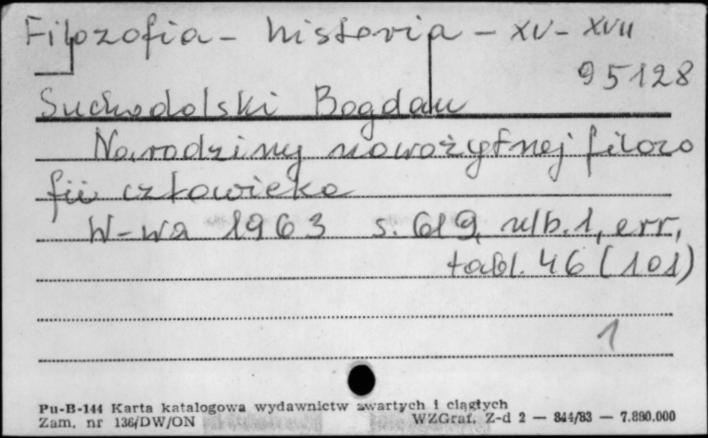 Filozofia - historia - XV - XVII
95128
Suchodolski Bogdan
Narodziny nowożytnej filozo
fii człowieka
W-wa 1963 s. 619, nlb. 1, err,
tabl. 46 (101)
1
Pu-B-144 Karta katalogowa wydawnictw zwartych i ciągłych
Zam. nr 136/DW/ON WZGraf. Z-d 2 — 844/83 — 7.890.000